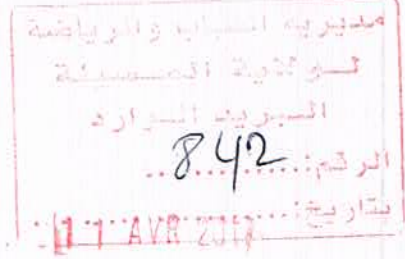 مديرية الشباب والرياضة
لولاية المسيلة
البريد الوارد
الرقم: 842
بتاريخ: 11 AVR